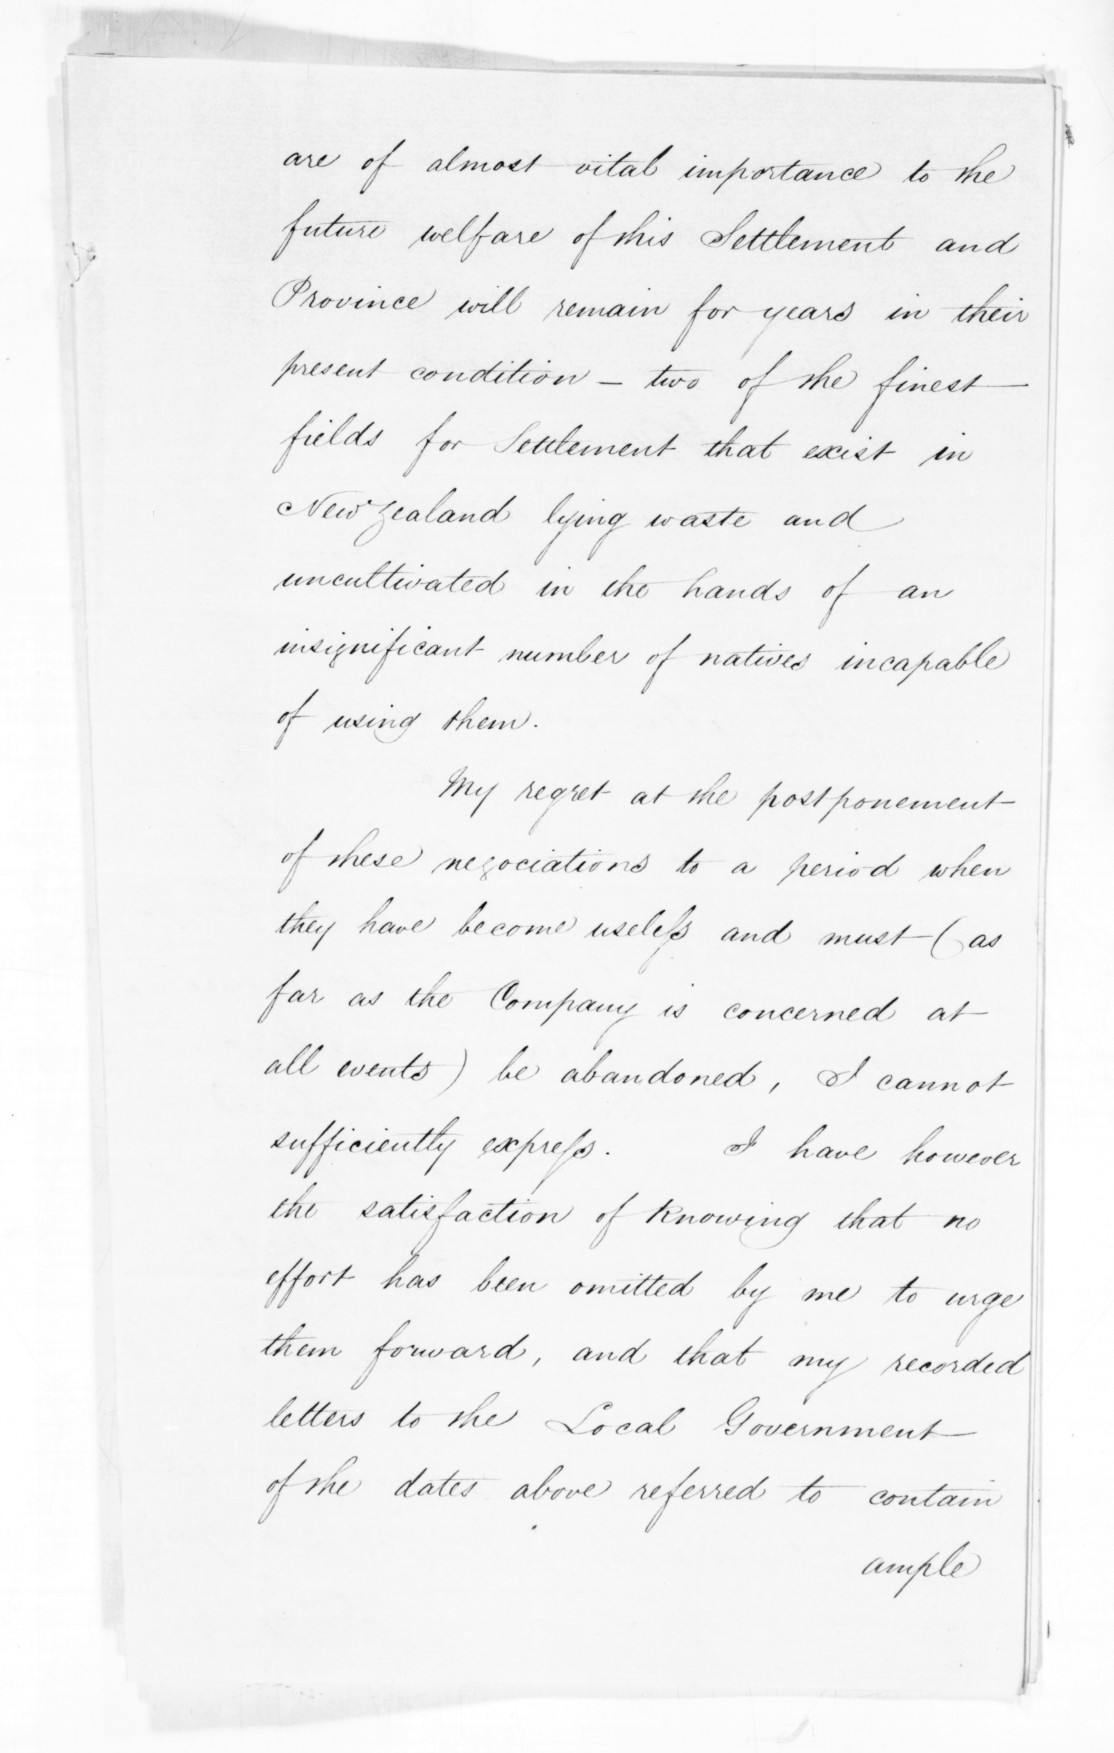 are of almost vital importance to the
future welfare of this Settlement and
Province will remain for years in their
present condition — two of the finest
fields for Settlement that exist in
New Zealand lying waste and
uncultivated in the hands of an
insignificant number of natives incapable
of using them.
My regret at the postponement
of these negociations to a period when
they have become useless and must (as
far as the Company is concerned at
all events) be abandoned, I cannot
sufficiently express. I have however
the satisfaction of knowing that no
effort has been omitted by me to urge
them forward, and that my recorded
letters to the Local Government
of the dates above referred to contain
ample